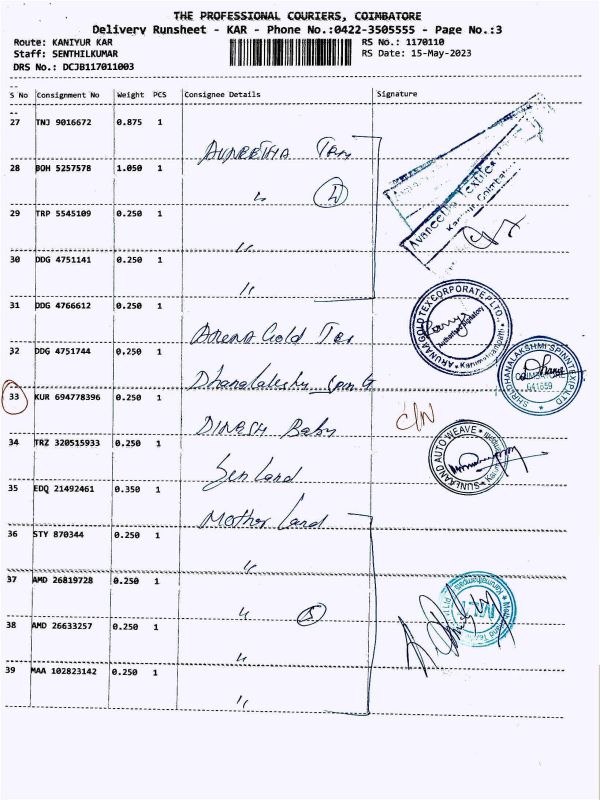 THE PROFESSIONAL COURIERS, COIMBATORE
Delivery Runsheet - KAR - Phone No.:0422-3505555 - Page No.:3
Route: KANIYUR KAR RS No.: 1170110
Staff: SENTHILKUMAR RS Date: 15-May-2023
DRS No.: DCJB117011003
S No Consignment No Weight PCS Consignee Details Signature
27 TNJ 9016672 0.875 1
AVNEETHA Tex
28 BOH 5257578 1.050 1
〃
29 TRP 5545109 0.250 1
〃
30 DDG 4751141 0.250 1
〃
Avaneetha Textile
Kaniyur Coimbatore
31 DDG 4766612 0.250 1
Aruna Gold Tex
ARUNAAGOLD TEX CORPORATE P LTD.,
Authorised Signatory
Karumathampatti
32 DDG 4751744 0.250 1
Dhanalakshmi Spintex
SHRI DHANALAKSHMI SPINNTEX (P) LTD
641659
33 KUR 694778396 0.250 1
DINESH Baby
C/N
34 TRZ 320515933 0.250 1
Sun Land
SUNLAAND AUTO WEAVE
35 EDQ 21492461 0.350 1
Mother Land
36 STY 870344 0.250 1
〃
37 AMD 26819728 0.250 1
〃 5
38 AMD 26633257 0.250 1
〃
39 MAA 102823142 0.250 1
〃